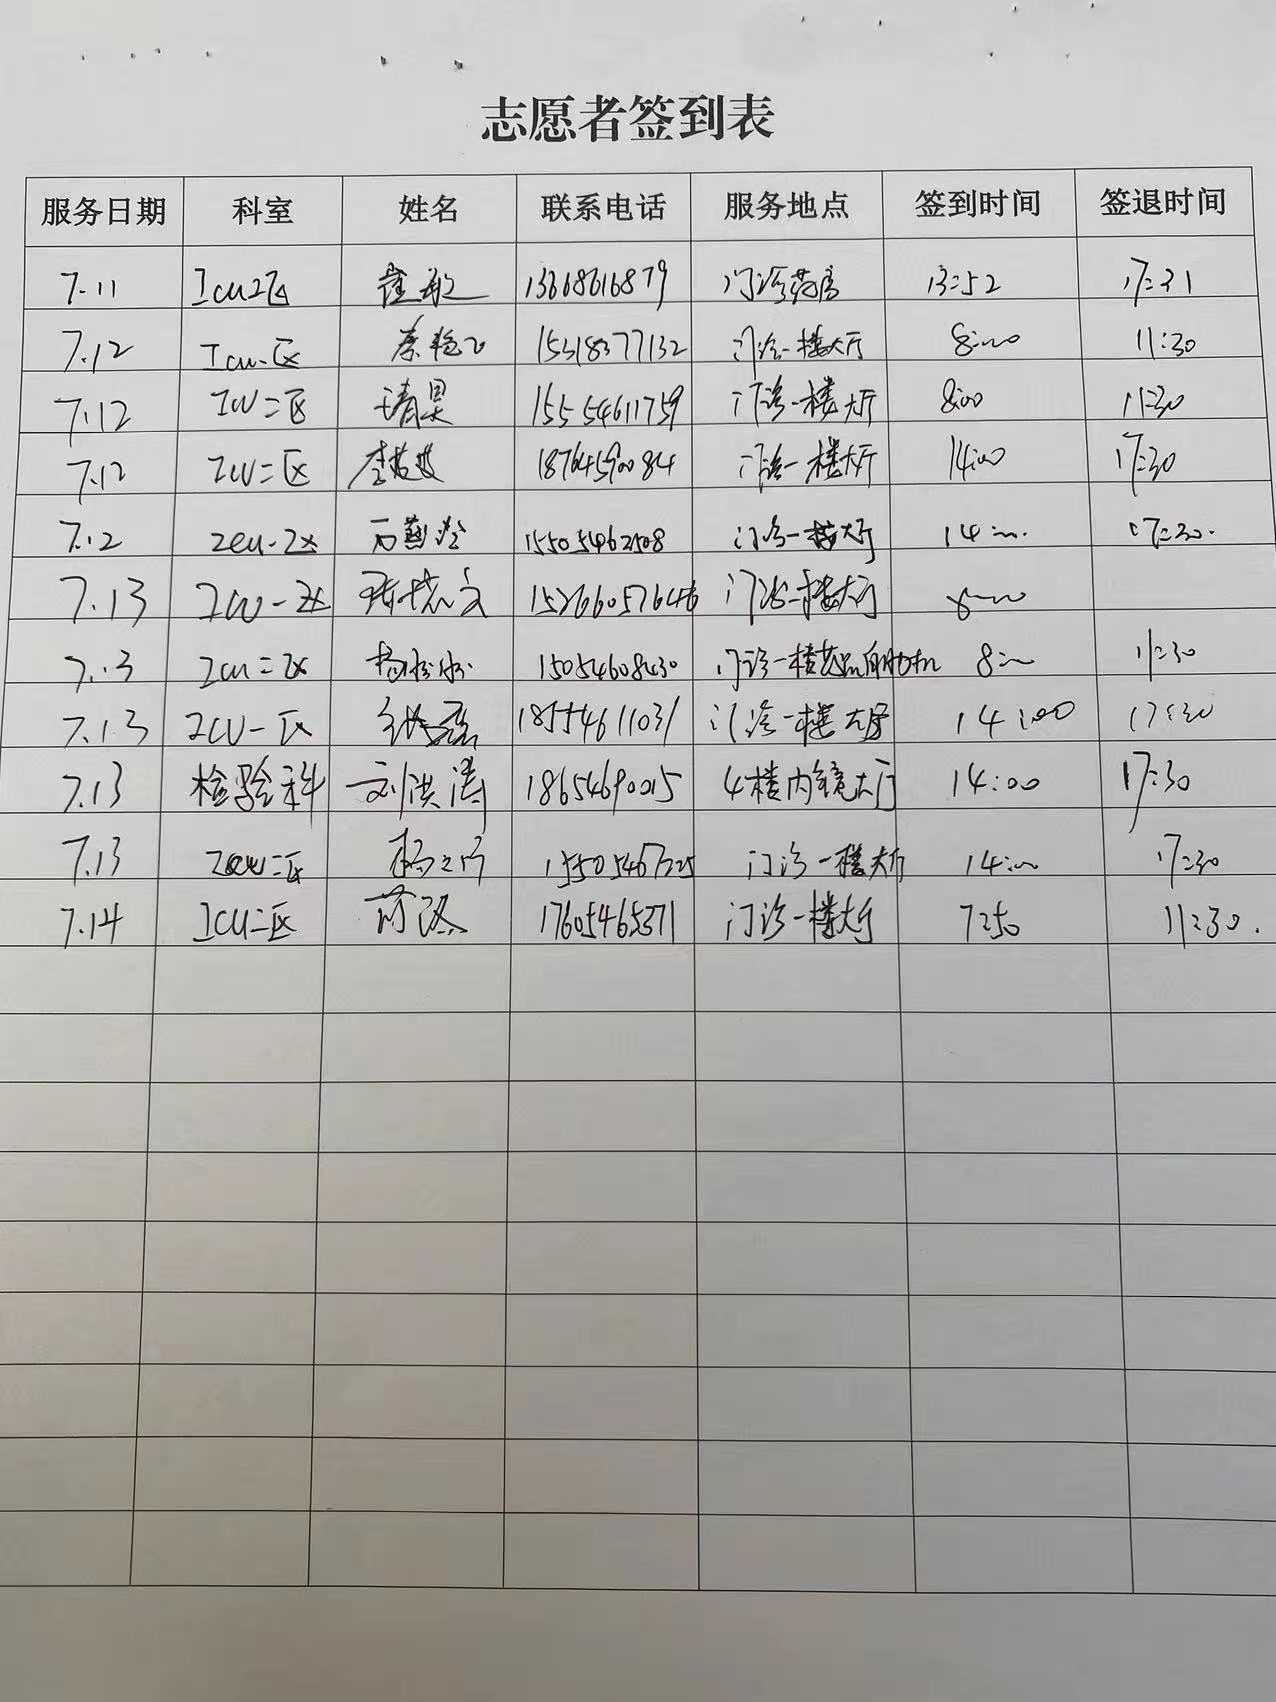 志愿者签到表
服务日期 科室 姓名 联系电话 服务地点 签到时间 签退时间
7.11 ICU2区 崔敏 13618616879 门诊药房 13:52 17:31
7.12 ICU一区 15318377132 门诊一楼大厅 8:00 11:30
7.12 ICU二区 15554611759 门诊一楼大厅 8:00 11:30
7.12 ICU二区 18764590084 门诊一楼大厅 14:00 17:30
7.12 ICU-区 15505462508 门诊一楼大厅 14:00 17:30.
7.13 ICU-区 门诊一楼大厅 8:00
7.13 ICU二区 15054608430 门诊一楼药品自助机 8:00 11:30
7.13 ICU-区 18554611031 门诊一楼大厅 14:00 17:30
7.13 检验科 刘洪涛 18654690015 4楼内镜大厅 14:00 17:30
7.13 ICU二区 15505467225 门诊一楼大厅 14:00 17:30
7.14 ICU二区 17605465371 门诊一楼大厅 7:50 11:30.